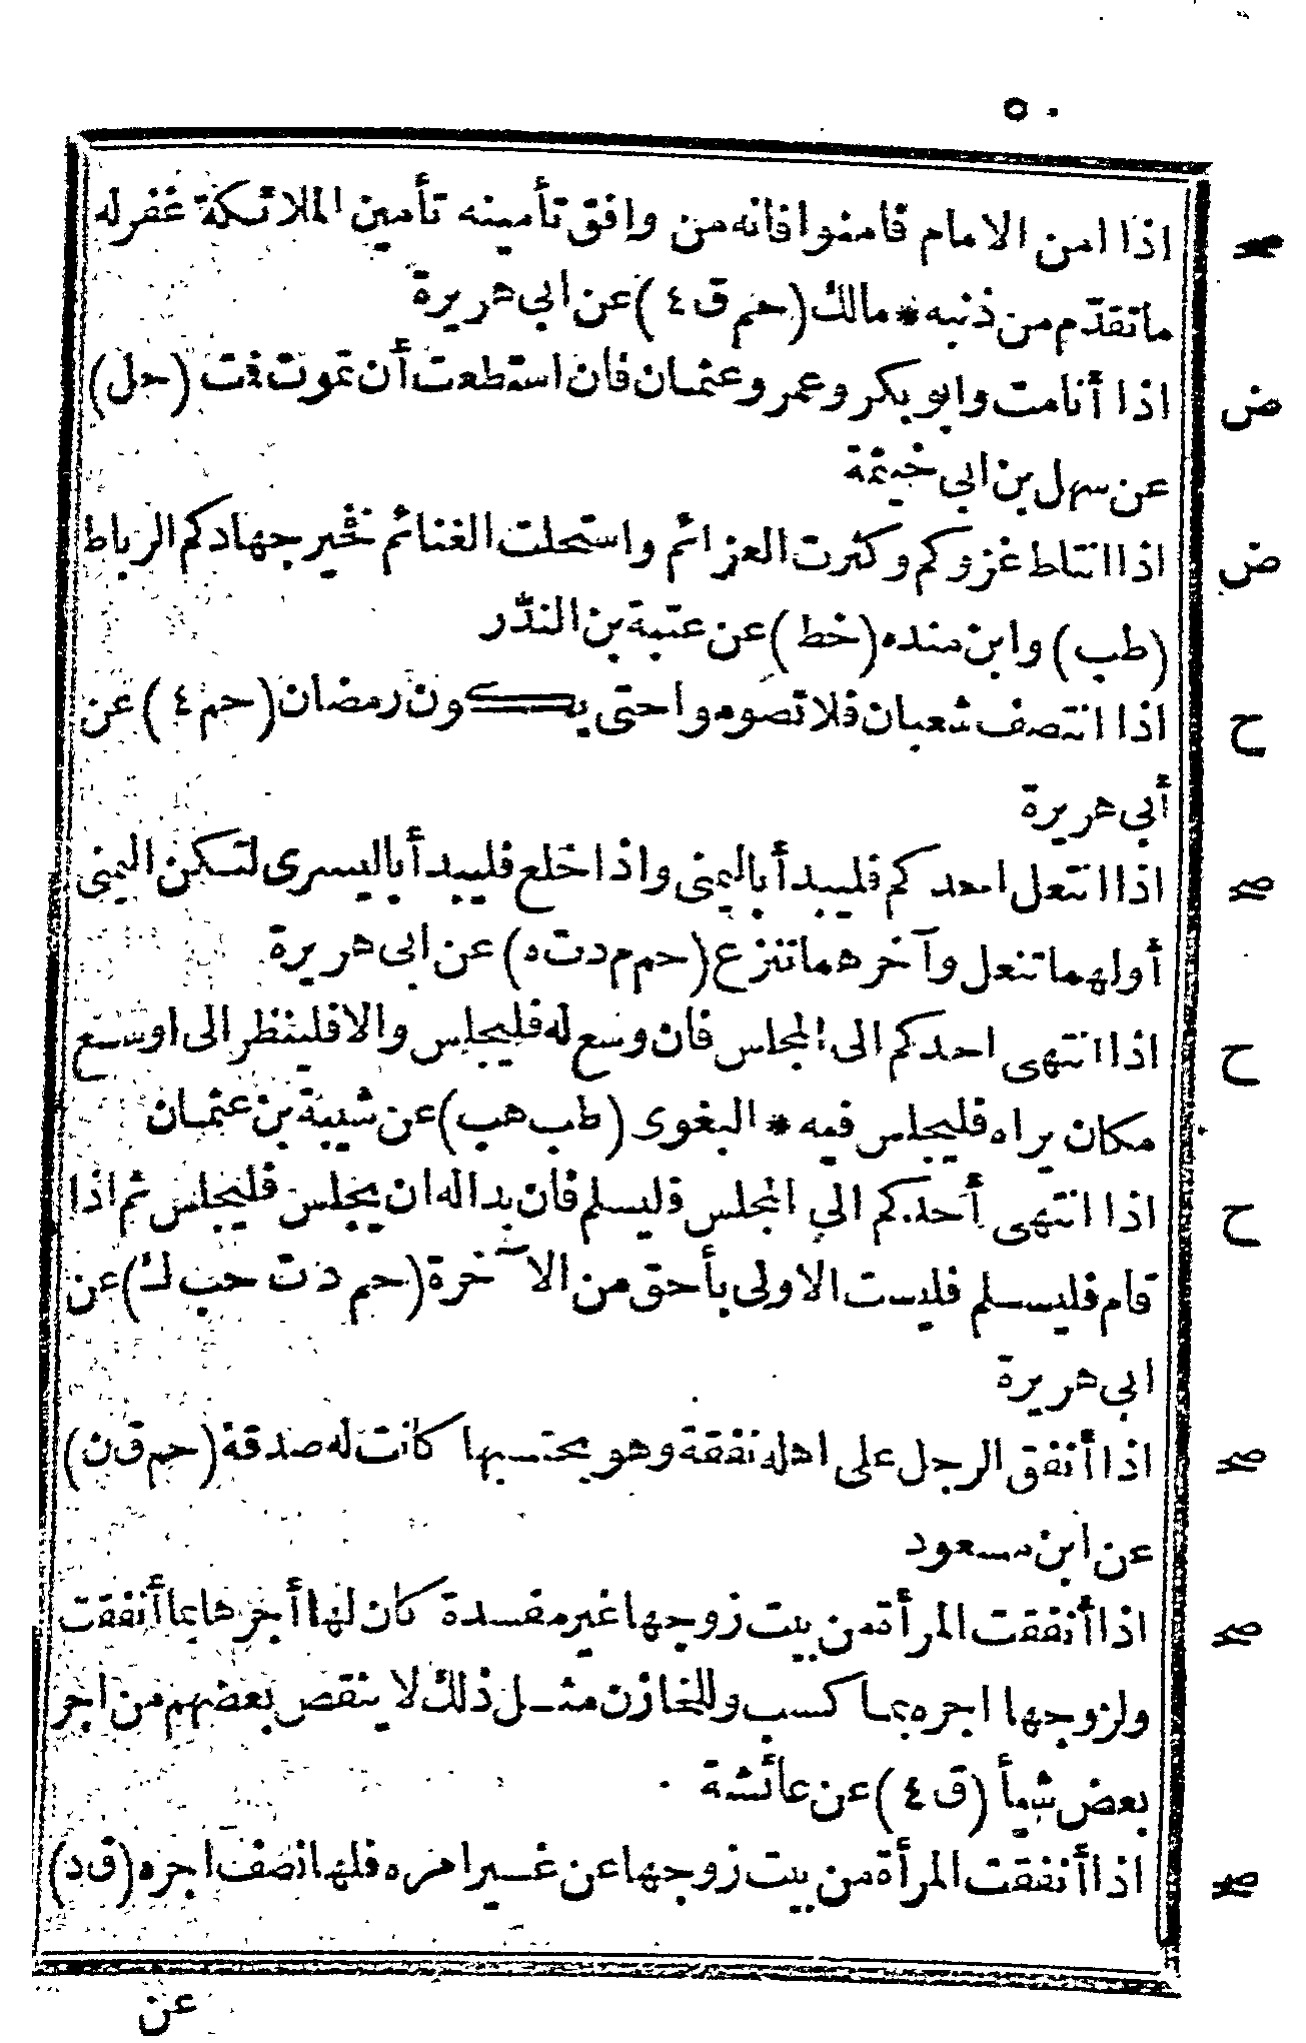 ٥٠
صح اذا امن الامام فامنوا فانه من وافق تأمينه تأمين الملائكة غفر له
ما تقدّم من ذنبه * مالك (حم ق ٤) عن ابي هريرة
ض اذا أنا مت وابو بكر وعمر وعثمان فان استطعت أن تموت فمت (حل)
عن سهل بن ابي خيثمة
ض اذا انتاط غزوكم وكثرت العزائم واستحلت الغنائم فخير جهادكم الرباط
(طب) وابن منده (خط) عن عتبة بن الندّر
ح اذا انتصف شعبان فلا تصوموا حتى يكون رمضان (حم ٤) عن
أبي هريرة
صح اذا انتعل احدكم فليبدأ باليمنى واذا خلع فليبدأ باليسرى لتكن اليمنى
أولهما تنعل وآخرهما تنزع (حم م د ت ه) عن ابى هريرة
ح اذا انتهى احدكم الى المجلس فان وسع له فليجلس والا فلينظر الى اوسع
مكان يراه فليجلس فيه * البغوى (طب هب) عن شيبة بن عثمان
ح اذا انتهى أحدكم الي المجلس فليسلم فان بدا له ان يجلس فليجلس ثم اذا
قام فليسلم فليست الاولى بأحق من الآخرة (حم د ت حب ك) عن
ابي هريرة
صح اذا أنفق الرجل على اهله نفقة وهو يحتسبها كانت له صدقة (حم ق ن)
عن ابن مسعود
صح اذا أنفقت المرأة من بيت زوجها غير مفسدة كان لها أجرها بما أنفقت
ولزوجها اجره بما كسب وللخازن مثل ذلك لا ينقص بعضهم من اجر
بعض شيأ (ق ٤) عن عائشة
صح اذا أنفقت المرأة من بيت زوجها عن غير امره فلها نصف اجره (ق د)
عن